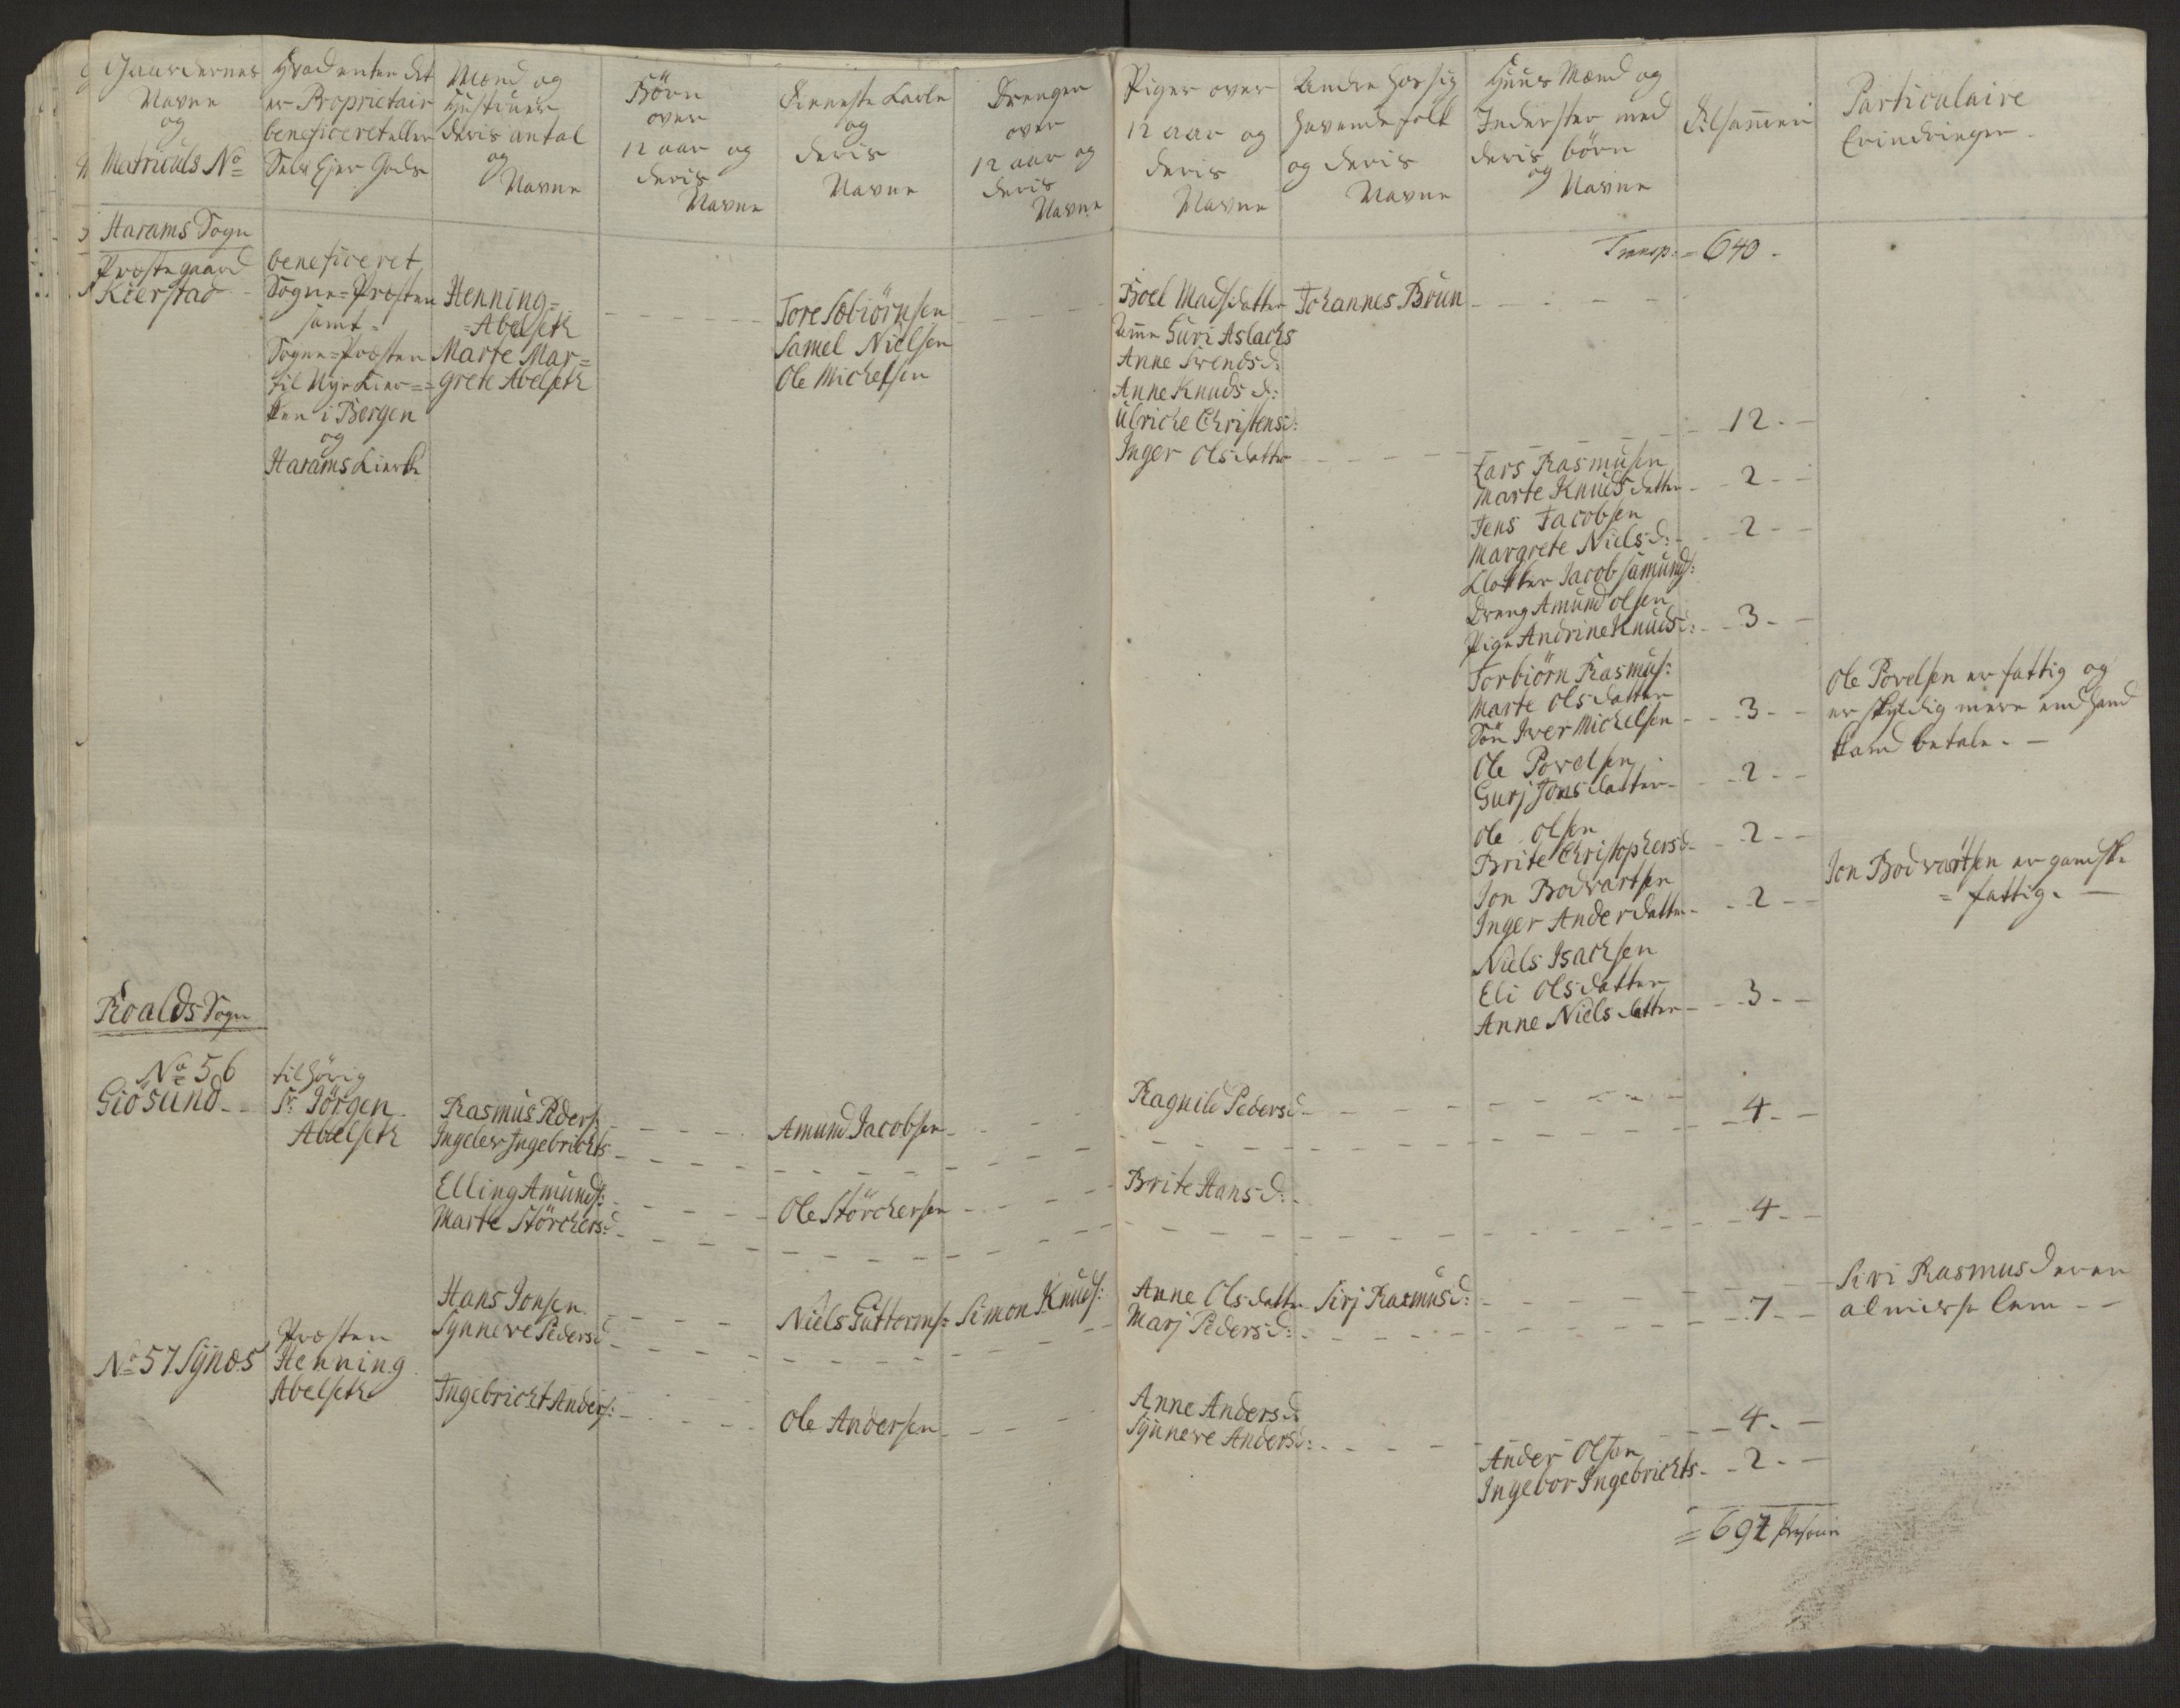 Gaardernes
Navne
og
Matriculs No
Hvad enten det
er Proprietair
beneficeret eller
Selv Ejer Gods
Mænd og
Hustruer
deris antal
og
Navne
Börn
over
12 aar og
deris
Navne
Tieneste Karle
og
deris
Navne
Drenger
over
12 aar og
deris
Navne
Piger over
12 aar og
deris
Navne
Andre hos sig
havende folk
og deris
Navne
Huus Mænd og
Inderster med
deris börn
og
Navne
Tilsammen
Particulaire
Erindringer
Harams Sogn
Transp: = 640 -
Præstegaard
Kierstad
beneficeret
Sogne=Præsten
samt =
Sogne=Præsten
til Nye Kier=
ken i Bergen
og
Harams Kierke
Henning=
=Abelseth
Marte Mar=
grete Abelseth
Tore Sæbiörnsen
Samel Nielsen
Ole Michelsen
Boel Madsdatter
Amme Guri Aslachs
Anne Svends d:
Anne Knuds d:
Ulriche Christens d:
Inger Olsdatter
Johannes Brun
12
Lars Rasmusen
Marte Knudsdatter - 2 -
Jens Jacobsen
Margrete Niels d: - 2 -
Klokker Jacob Samunds:
Dreng Amund Olsen
Pige Andrine Knuds d: - 3 -
Torbiörn Rasmus:
Marte Olsdatter
Sön Iver Michelsen - 3 -
Ole Povelsen
Gurj Jonsdatter - 2 -
Ole Povelsen er fattig og
er skyldig mere end hand
kand betale. -
Ole Olsen
Brite Christophersd - 2 -
Jon Bodvartsen
Inger Anderdatter - 2 -
Jon Bodvartsen er gandske
= fattig. -
Niels Isachsen
Eli Olsdatter
Anne Nielsdatter - 3 -
Roalds Sogn
No 56
Giösund
tilhörig
Sr Jörgen
Abelseth
Rasmus Peders:
Ingeler Ingebrichts
Amund Jacobsen
Ragnild Pedersd
4
Elling Amunds:
Marte Störchers:d
Ole Störchersen
Brite Hans d:
4
Hans Jonsen
Synneve Pedersd
Niels Guttorms:
Simon Knuds:
Anne Olsdatter
Marj Pedersd:
Sirj Rasmusd:
7
Siri Rasmusd er en
almisse lem -
No 57. Synæs
Præsten
Henning
Abelseth
Ingebricht Anders:
Ole Andersen
Anne Andersd
Synneve Andersd:
4
Ander Olsen
Ingebor Ingebrichts - 2 -
= 697 Personer